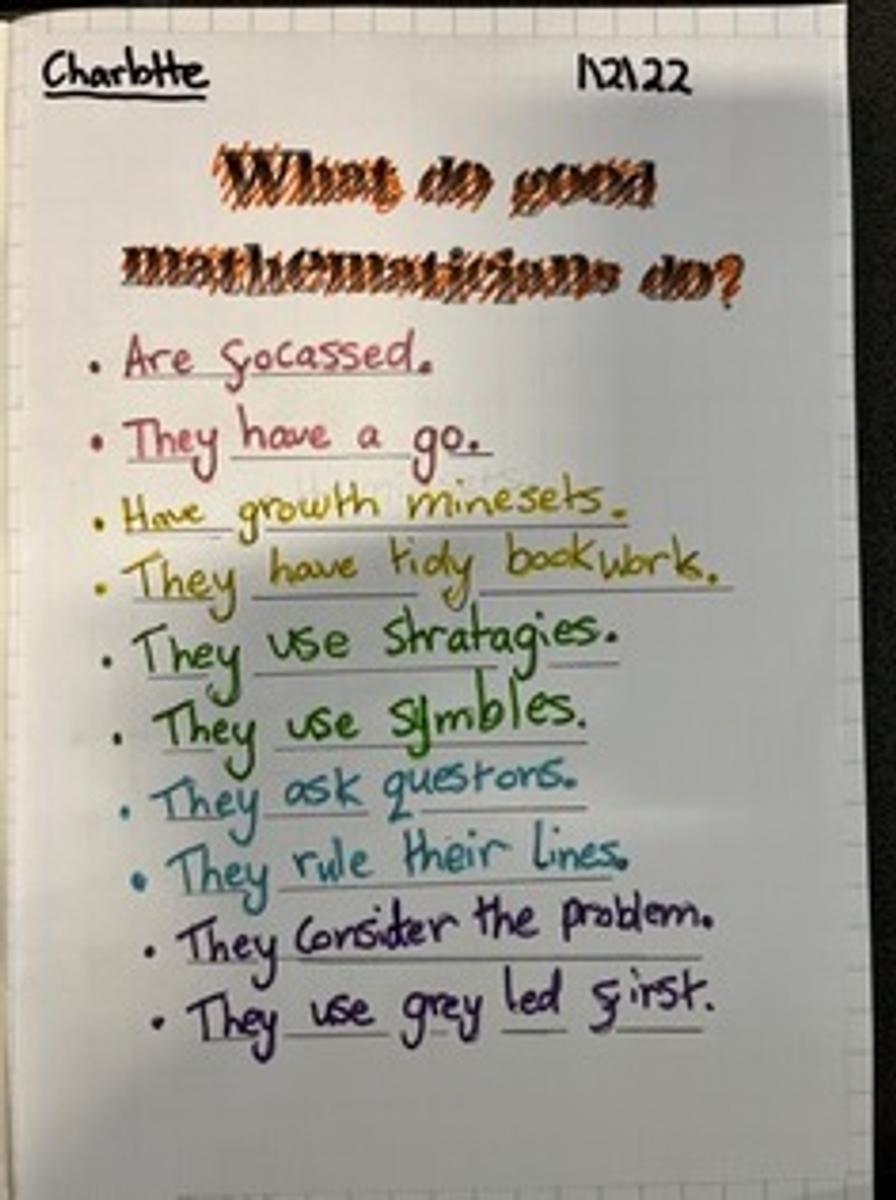 Charlotte 1\2\22
What do good
mathematicians do?
• Are focassed.
• They have a go.
• Have growth minesets.
• They have tidy bookwork.
• They use stratagies.
• They use symbles.
• They ask questons.
• They rule their lines.
• They consider the problem.
• They use grey led first.